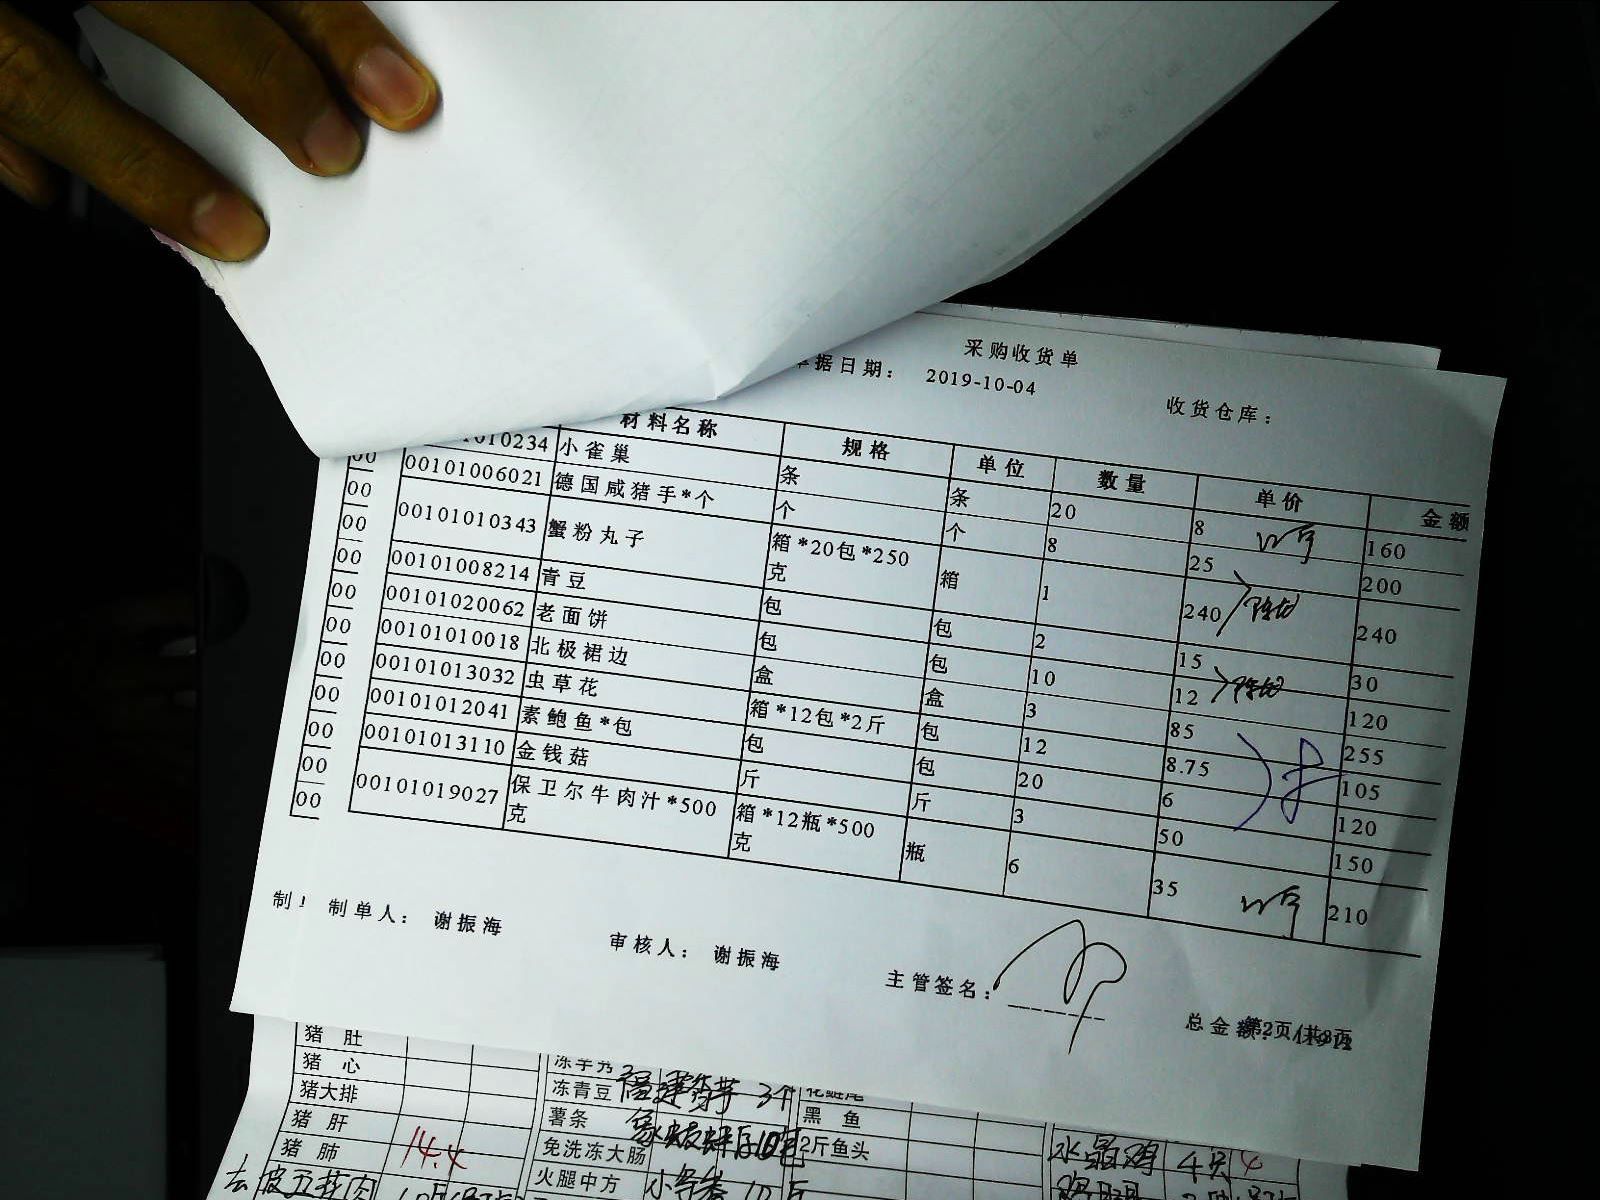 采购收货单
单据日期： 2019-10-04
收货仓库：
材料名称 规格 单位 数量 单价 金额
1010234 小雀巢 条 条 20 8 160
00101006021 德国咸猪手*个 个 个 8 25 200
00101010343 蟹粉丸子 箱*20包*250克 箱 1 240 240
00101008214 青豆 包 包 2 15 30
00101020062 老面饼 包 包 10 12 120
00101010018 北极裙边 盒 盒 3 85 255
00101013032 虫草花 箱*12包*2斤 包 12 8.75 105
00101012041 素鲍鱼*包 包 包 20 6 120
00101013110 金钱菇 斤 斤 3 50 150
00101019027 保卫尔牛肉汁*500克 箱*12瓶*500克 瓶 6 35 210
00
00
00
00
00
00
00
00
00
00
00
制 制单人： 谢振海 审核人： 谢振海 主管签名：
总金额 第2页
猪 肚
猪 心 冻芋艿
猪大排 冻青豆 3个
猪 肝 薯条 黑 鱼
猪 肺 14.4 免洗冻大肠 2斤鱼头 水晶鸡 4只
去皮五花肉 火腿中方